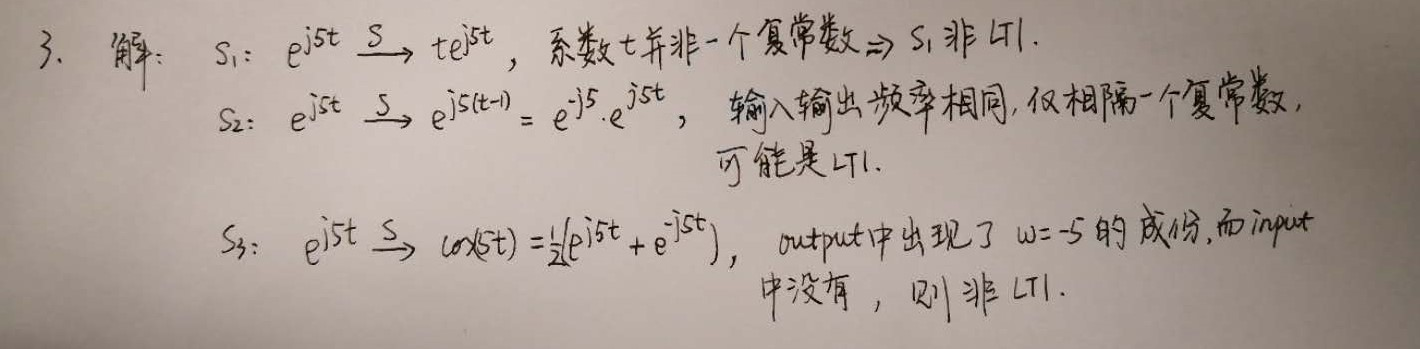 3. 解: S₁: e^{j5t} \xrightarrow{S} te^{j5t}, 系数t并非一个复常数 ⇒ S₁非LTI.
S₂: e^{j5t} \xrightarrow{S} e^{j5(t-1)} = e^{-j5}·e^{j5t}, 输入输出频率相同,仅相隔一个复常数,
可能是LTI.
S₃: e^{j5t} \xrightarrow{S} cos(5t) = \frac{1}{2}(e^{j5t} + e^{-j5t}), output中出现了 ω=-5 的成份,而input
中没有, 则非LTI.